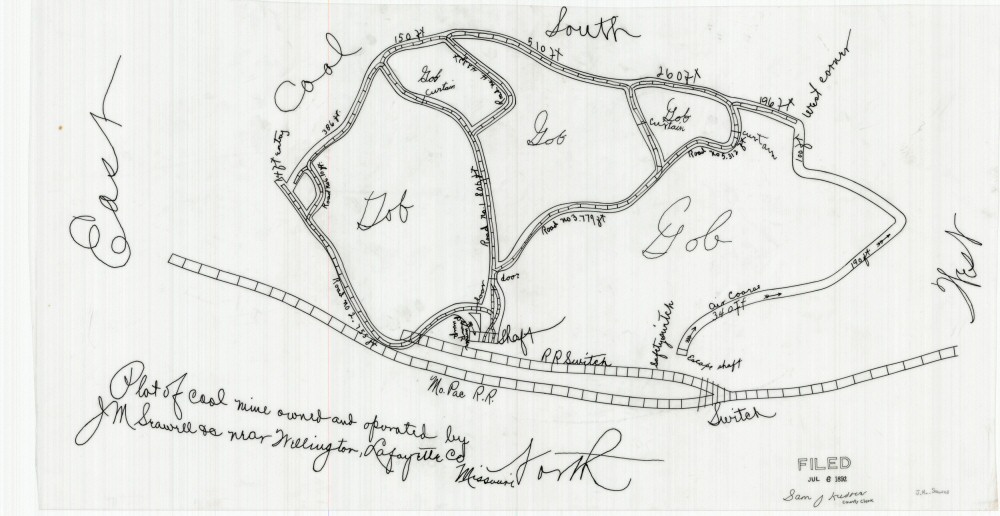 South
Coal
150 ft
510 ft
260 ft
196 ft
West corner
East
Gob
curtain
Road
Gob
Gob
curtain
curtain
Road no 5. 312 ft
100 ft
386 ft
entry
Gob
Road no 1. 800 ft
Road no 3. 779 ft
Gob
190 ft
West
door
door
air Coarse
340 ft
Road no 2.
Shaft
Escape shaft
R R Switch
Mo. Pac R.R.
Switch
Plat of coal mine owned and oporated by
J M & Co near Wellington, Lafayette Co
Missouri
North
FILED
JUL 6 1892
Sam J
County Clerk